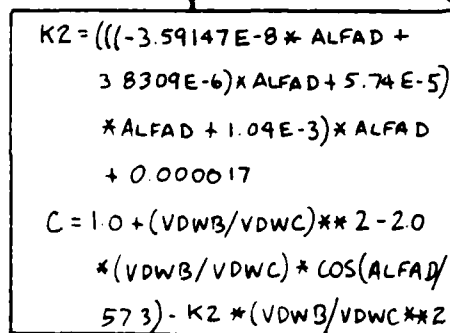 K2 = (((-3.59147E-8 * ALFAD +
3 8309E-6) * ALFAD + 5.74E-5)
* ALFAD + 1.04E-3) * ALFAD
+ 0.000017
C = 1.0 + (VDWB/VDWC) ** 2 - 2.0
* (VDWB/VDWC) * COS(ALFAD/
57 3) - K2 * (VDWB/VDWC **2